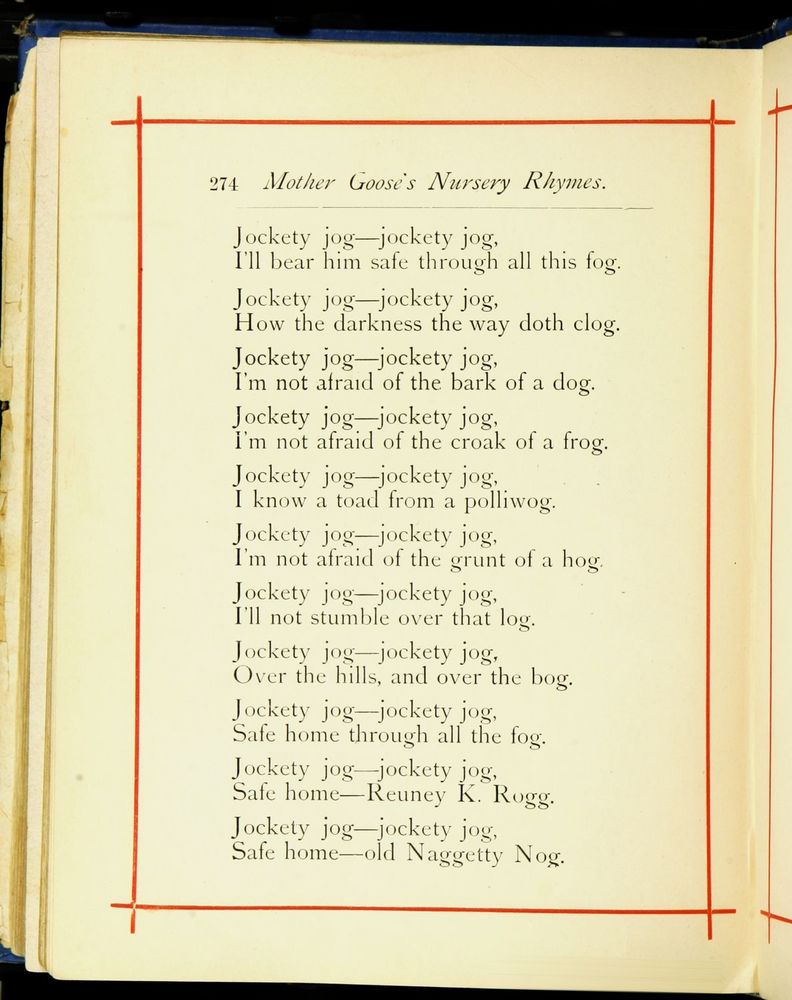 274 Mother Goose's Nursery Rhymes.
Jockety jog—jockety jog,
I'll bear him safe through all this fog.
Jockety jog—jockety jog,
How the darkness the way doth clog.
Jockety jog—jockety jog,
I'm not afraid of the bark of a dog.
Jockety jog—jockety jog,
I'm not afraid of the croak of a frog.
Jockety jog—jockety jog,
I know a toad from a polliwog.
Jockety jog—jockety jog,
I'm not afraid of the grunt of a hog.
Jockety jog—jockety jog,
I'll not stumble over that log.
Jockety jog—jockety jog,
Over the hills, and over the bog.
Jockety jog—jockety jog,
Safe home through all the fog.
Jockety jog—jockety jog,
Safe home—Reuney K. Rogg.
Jockety jog—jockety jog,
Safe home—old Naggetty Nog.